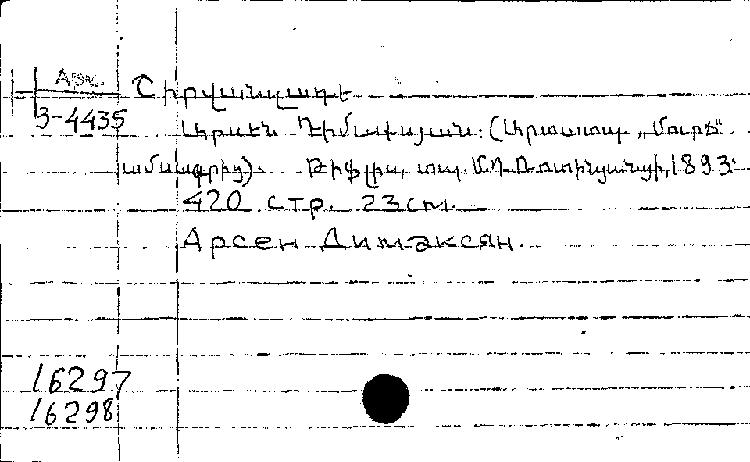 Арм.
Շիրվանզադե
3-4435
Արսէն Դիմաքսյան: (Արտատպ „Մուրճ"
ամսագրից). Թիֆլիս, տպ. Մ. Դ. Ռոտինյանցի, 1893.
420 стр. 23 см.
Арсен Димаксян.
16297
16298